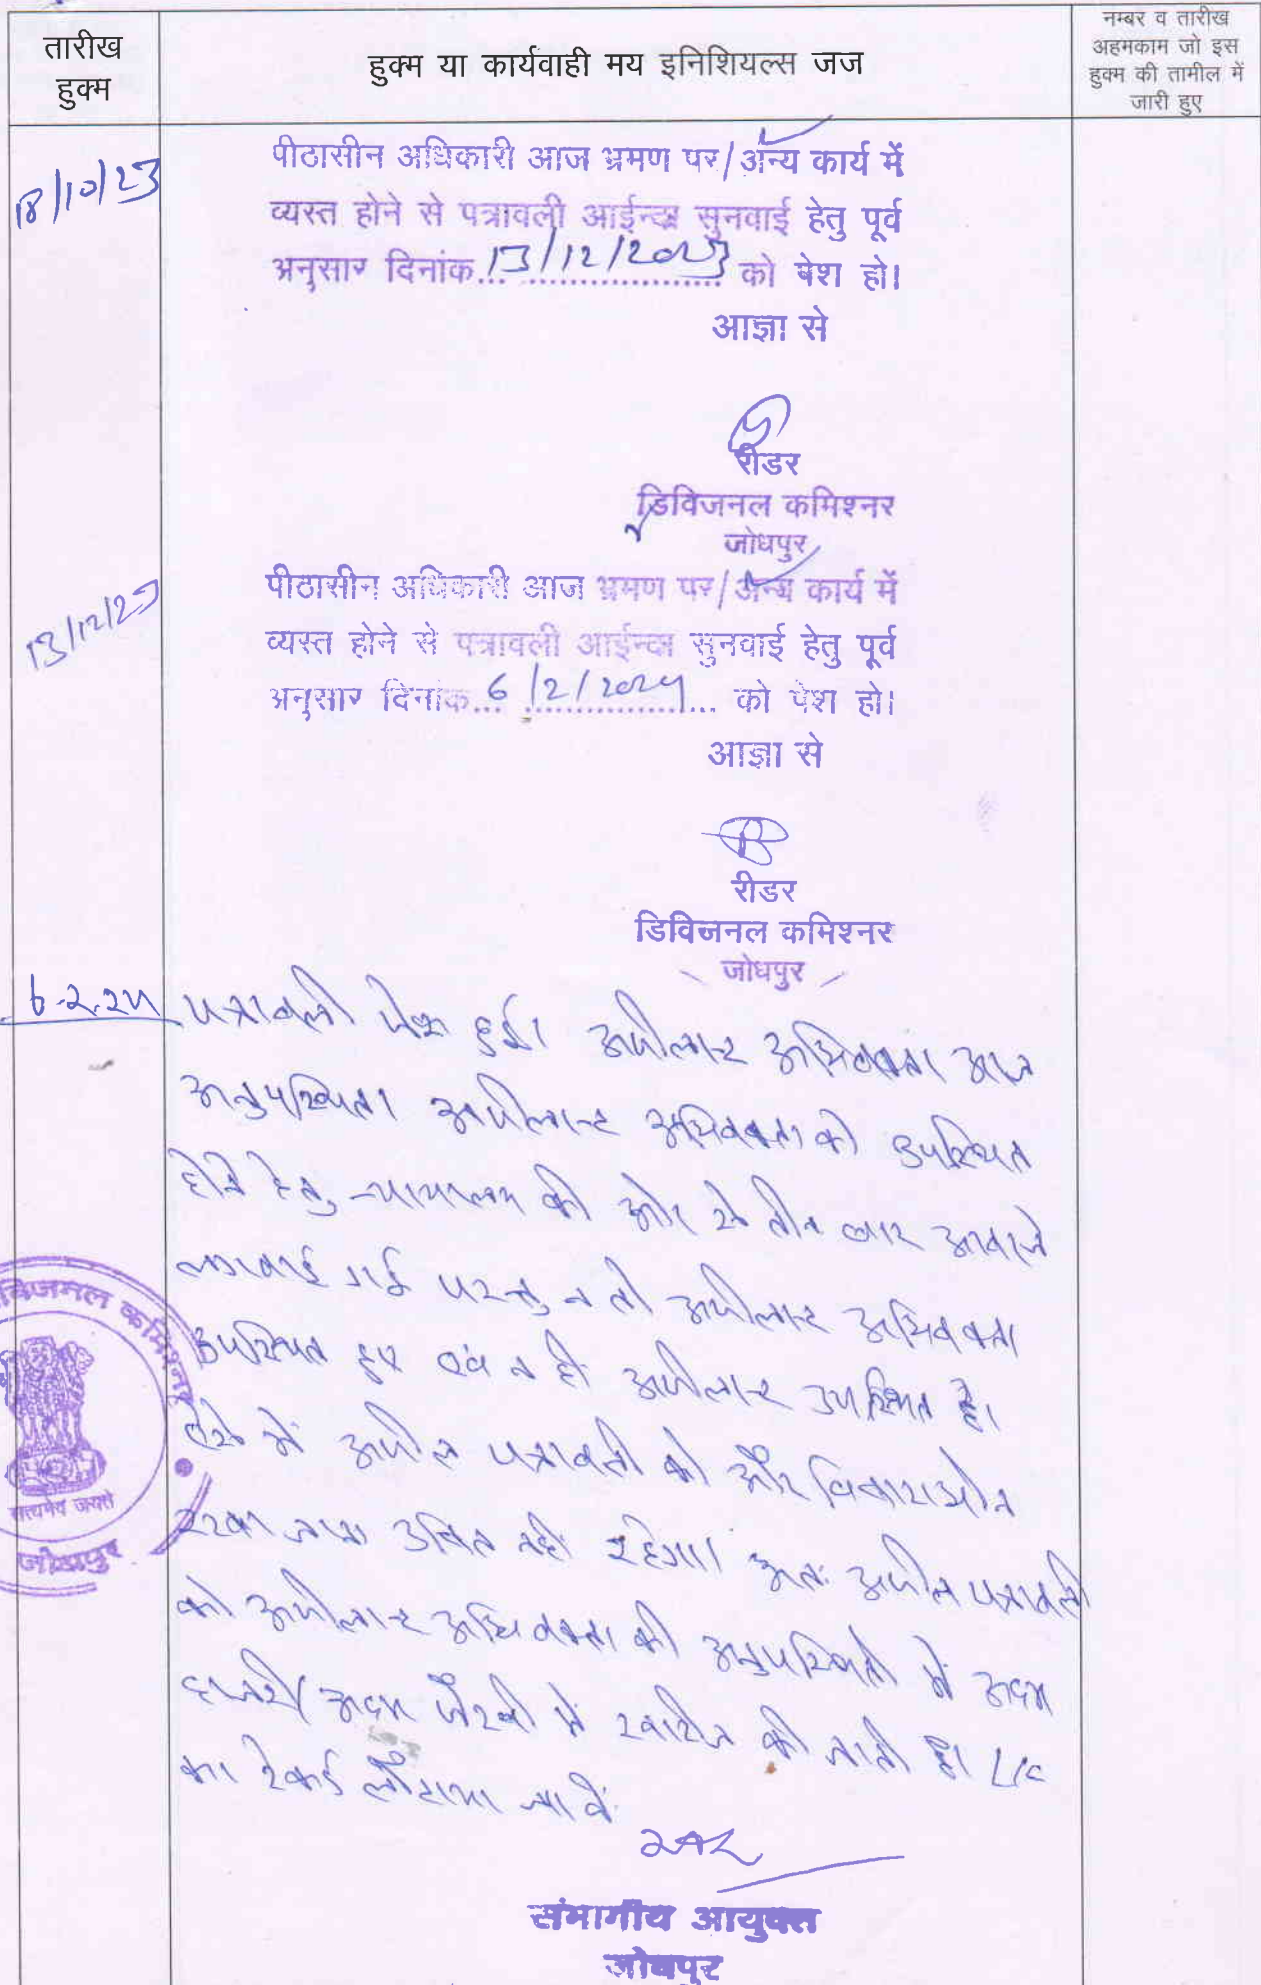 तारीख
हुक्म
हुक्म या कार्यवाही मय इनिशियल्स जज
नम्बर व तारीख
अहमकाम जो इस
हुक्म की तामील में
जारी हुए
18/10/23
पीठासीन अधिकारी आज भ्रमण पर/अन्य कार्य में
व्यस्त होने से पत्रावली आईन्दा सुनवाई हेतु पूर्व
अनुसार दिनांक... 13/12/2023 को पेश हो।
आज्ञा से
रीडर
डिविजनल कमिश्नर
जोधपुर
13/12/23
पीठासीन अधिकारी आज भ्रमण पर/अन्य कार्य में
व्यस्त होने से पत्रावली आईन्दा सुनवाई हेतु पूर्व
अनुसार दिनांक... 6/2/2024 ... को पेश हो।
आज्ञा से
रीडर
डिविजनल कमिश्नर
जोधपुर
6.2.24 पत्रावली पेश हुई। अपीलान्ट अभिवक्ता आज
अनुपस्थित। अपीलान्ट अभिवक्ता को उपस्थित
होने हेतु न्यायालय की ओर से तीन बार आवाजे
लगवाई गई परन्तु न तो अपीलान्ट अभिवक्ता
उपस्थित हुए एवं न ही अपीलान्ट उपस्थित है।
ऐसे में अपील पत्रावली को और विचाराधीन
रखा जाना उचित नहीं रहेगा। अतः अपील पत्रावली
को अपीलान्ट अधिवक्ता की अनुपस्थिति में अदम
हाजरी/अदम पैरवी में खारीज की जाती है। L/C
का रेकर्ड लौटाया जावें
संभागीय आयुक्त
जोधपुर
विजनल कमिश्नर
सत्यमेव जयते
जोधपुर